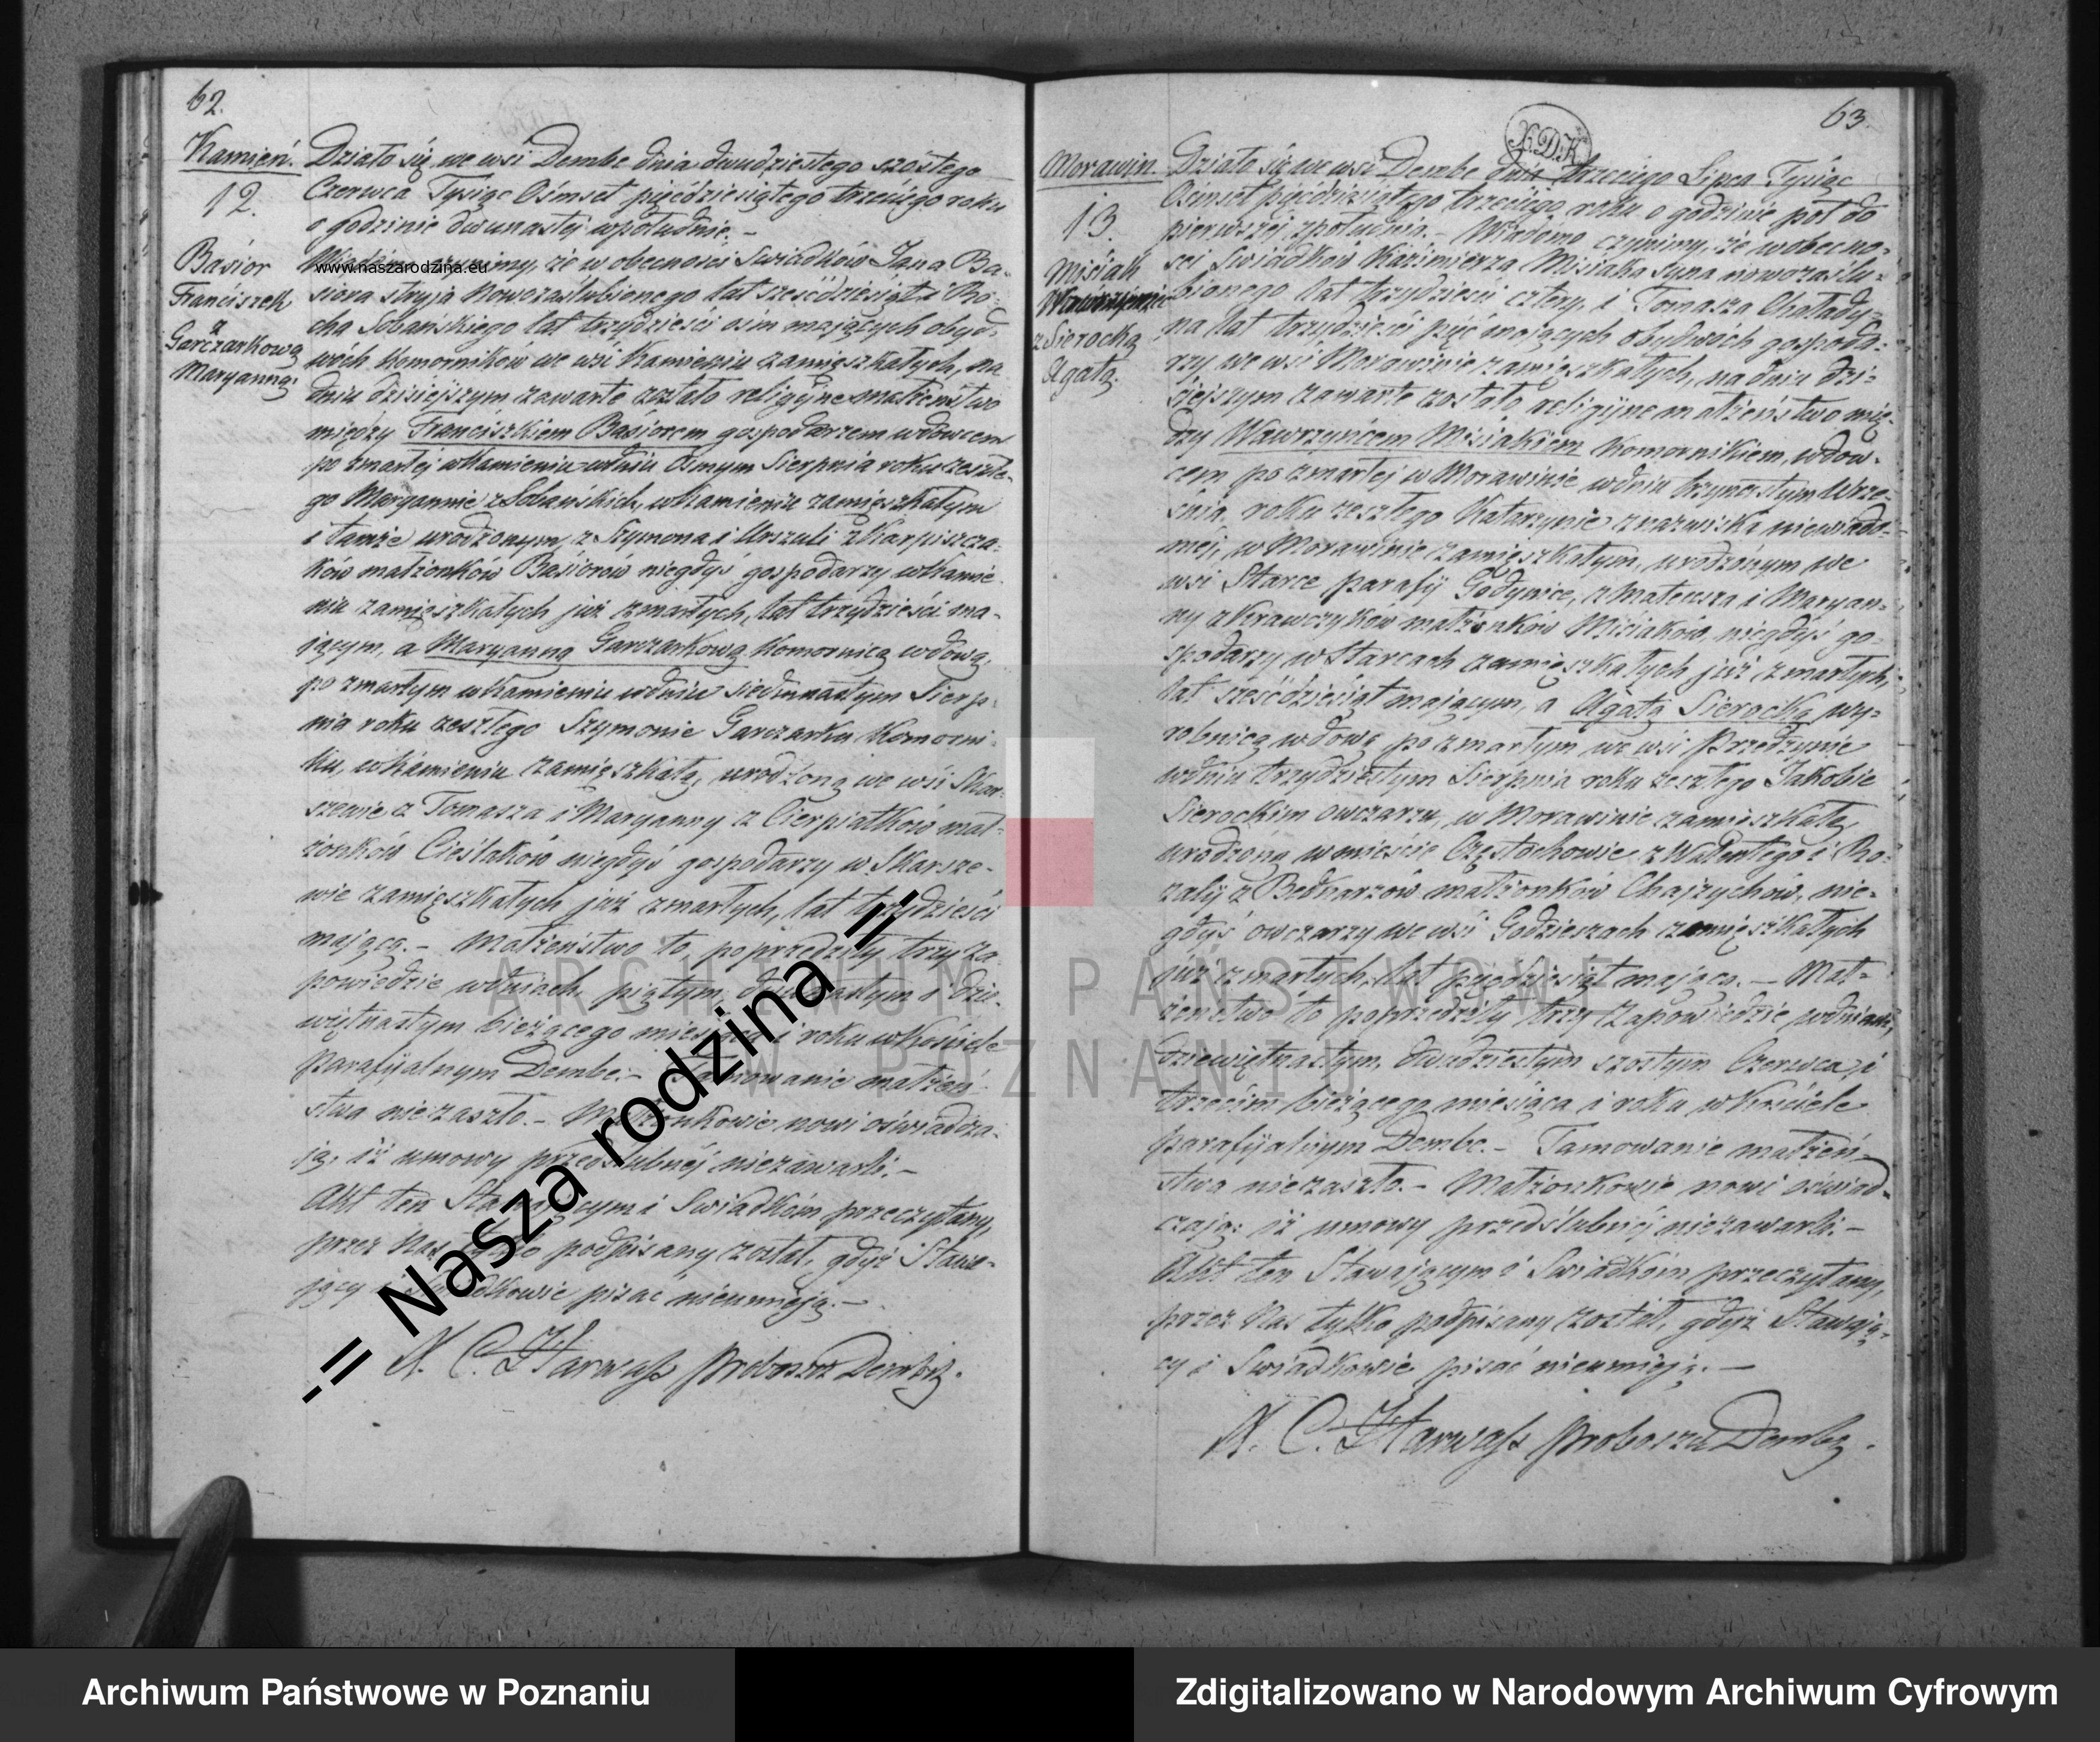 62.
Kamień.
12.
Basior
Franciszek
a
Garczarkową
Maryanną.
Działo się we wsi Dembe dnia dwudziestego szóstego
Czerwca Tysiąc Ośmset pięćdziesiątego trzeciego roku
o godzinie dwunastej w południe. –
Wiadomo czynimy, że w obecności Swiadków Jana Ba-
siora stryja Nowozaślubionego lat sześćdziesiąt i Ro-
cha Sobańskiego lat trzydzieści ośm mających obyd-
wóch Komorników we wsi Kamieniu zamięszkałych, na
dniu dzisiejszym zawarte zostało religijne małżeństwo
między Franciszkiem Basiorem gospodarzem wdowcem
po zmarłej w Kamieniu w dniu Osmym Sierpnia roku zeszłe-
go Maryannie z Sobańskich, w Kamieniu zamięszkałym
i tamże urodzonym z Szymona i Urszuli z Karpiszcza-
ków małżonków Basiorów niegdyś gospodarzy w Kamie-
niu zamięszkałych już zmarłych, lat trzydzieści ma-
jącym, a Maryanną Garczarkową Komornicą wdową,
po zmarłym w Kamieniu w dniu siedmnastym Sierp-
nia roku zeszłego Szymonie Garczarku Komorni-
ku, w Kamieniu zamięszkałą, urodzoną we wsi Skar-
szewie z Tomasza i Maryanny z Cierpiatków mał-
żonków Cieślaków niegdyś gospodarzy w Skarsze-
wie zamięszkałych już zmarłych, lat trzydzieści
mającą. – Małżeństwo to poprzedziły trzy za-
powiedzie w dniach piątym, dwunastym i dzie-
więtnastym bieżącego miesiąca i roku w Kościele
parafijalnym Dembe. – Tamowanie małżeń-
stwa niezaszło. – Małżonkowie nowi oświadcza-
ją, iż umowy przedślubnéj niezawarli. –
Akt ten Stawającym i Swiadkóm przeczytany,
przez Nas tylko podpisany został, gdyż Stawa-
jący i Swiadkowie pisać nieumieją. –
X. C. Harwass proboszcz Dembsk.
www.naszarodzina.eu
-= Nasza rodzina =-
63.
X.D.K.
Morawin.
13.
Misiak
Wawrzyniec
z Sierocką
Agatą.
Działo się we wsi Dembe dnia trzeciego Lipca Tysiąc
Ośmset pięćdziesiątego trzeciego roku o godzinie pół do
pierwszej z południa. – Wiadomo czynimy, że w obecno-
ści Swiadków Kaźmierza Misiaka syna nowozaślu-
bionego lat trzydzieści cztery, i Tomasza Chałady-
na lat trzydzieści pięć mających obydwóch gospoda-
rzy we wsi Morawinie zamięszkałych, na dniu dzi-
siejszym zawarte zostało religijne małżeństwo mię-
dzy Wawrzyńcem Misiakiem Komornikiem, wdow-
cem po zmarłej w Morawinie w dniu trzynastym Wrze-
śnia roku zeszłego Katarzynie z nazwiska niewiado-
mej, w Morawinie zamięszkałym, urodzonym we
wsi Starce parafij Godynice, z Mateusza i Maryan-
ny z Krawczyków małżonków Misiaków, niegdyś go-
spodarzy w Starcach zamięszkałych już zmarłych,
lat sześćdziesiąt mającym, a Agatą Sierocką wy-
robnicą wdową po zmarłym we wsi Przedzynie
w dniu trzydziestym Sierpnia roku zeszłego Jakobie
Sierockim owczarzu, w Morawinie zamięszkałą,
urodzoną w mieście Częstochowie z Walentego i Ro-
zalij z Bednarzów małżonków Chajzychów, nie-
gdyś owczarzy we wsi Godzieszach zamięszkałych
już zmarłych, lat pięćdziesiąt mającą. – Mał-
żeństwo to poprzedziły trzy zapowiedzie w dniach,
dziewiętnastym, dwudziestym szóstym Czerwca i
trzecim bieżącego miesiąca i roku w Kościele
parafijalnym Dembe. – Tamowanie małżeń-
stwa niezaszło. – Małżonkowie nowi oświad-
czają: iż umowy przedślubnéj niezawarli. –
Akt ten Stawającym i Swiadkóm przeczytany,
przez Nas tylko podpisany został, gdyż Stawają-
cy i Swiadkowie pisać nieumieją. –
X. C. Harwass proboszcz Dembs.
ARCHIWUM PAŃSTWOWE
W POZNANIU
Archiwum Państwowe w Poznaniu
Zdigitalizowano w Narodowym Archiwum Cyfrowym